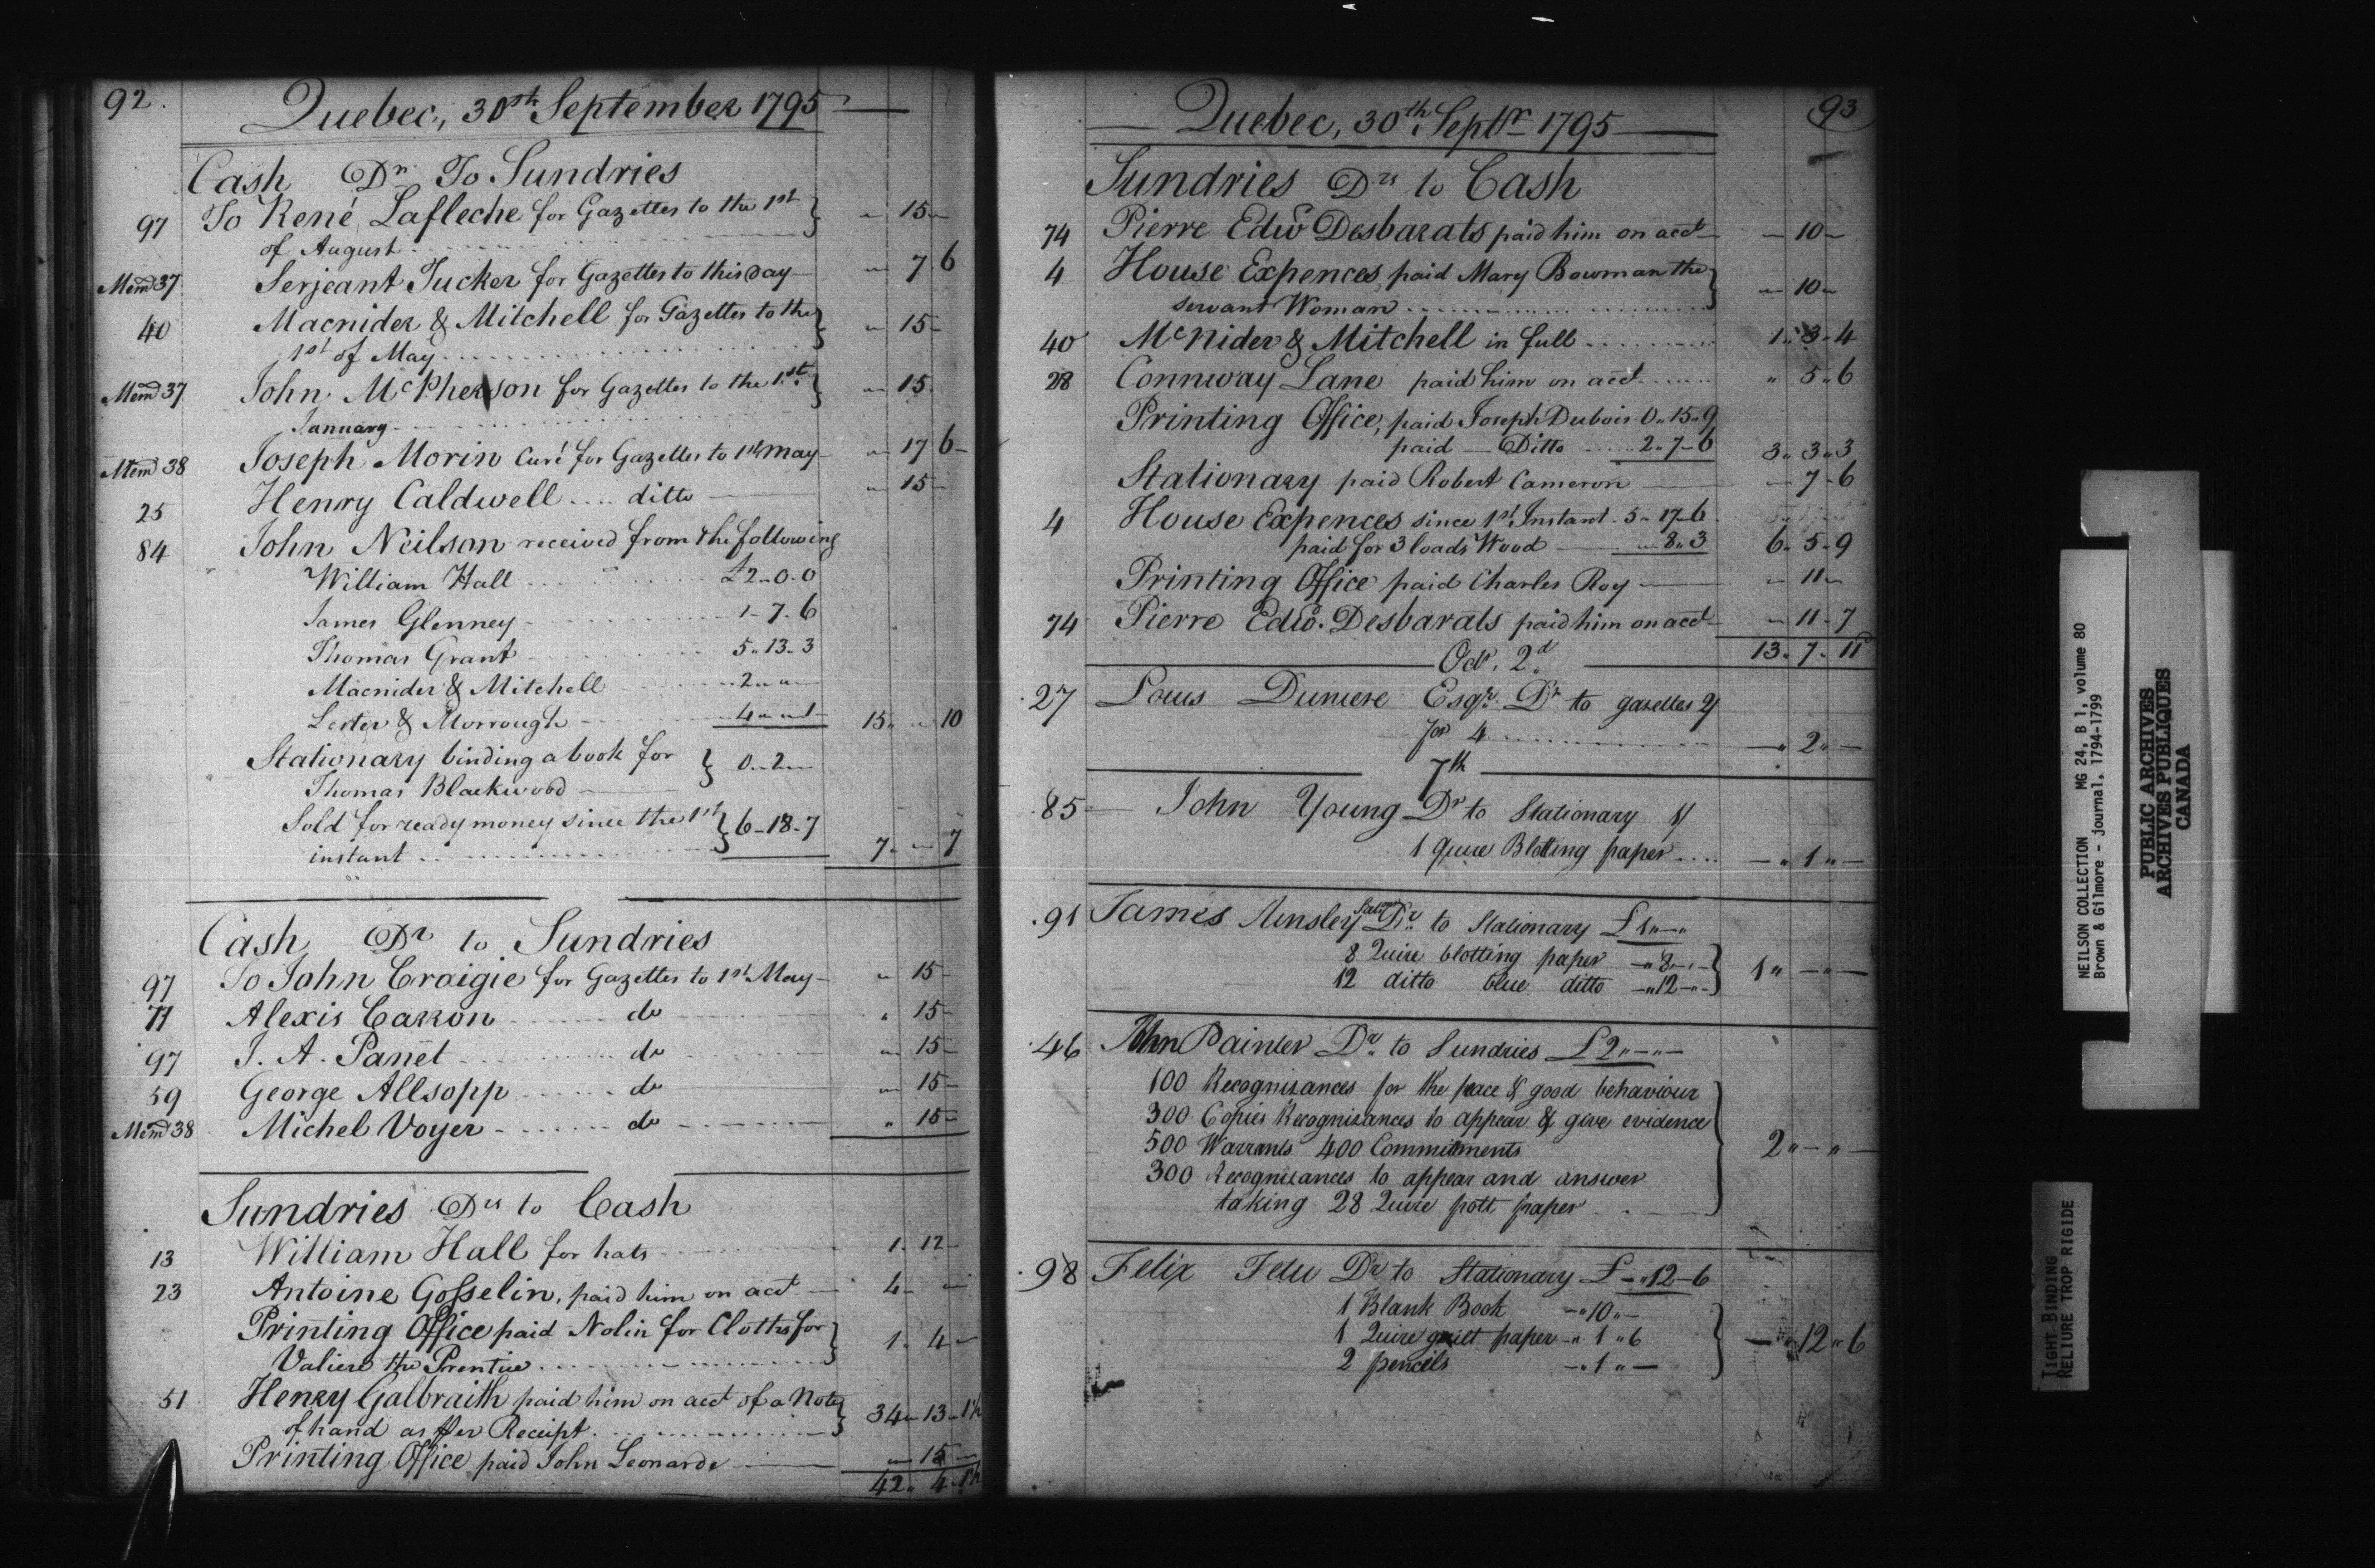 92.
Quebec, 30th September 1795
Cash Dr To Sundries
97 To René Lafleche for Gazettes to the 1st } " 15 -
of August
Memd 37 Serjeant Tucker for Gazettes to this day " 7. 6
40 Macnider & Mitchell for Gazettes to the } " 15 -
1st of May
Memd 37 John McPherson for Gazettes to the 1st } " 15.
January
Memd 38 Joseph Morin Curé for Gazettes to 1st May " 17 6 -
25 Henry Caldwell .... ditto " 15 -
84 John Neilson received from the following
William Hall £2 - 0 - 0
James Glenney 1 - 7 - 6
Thomas Grant 5 " 13 - 3
Macnider & Mitchell 2 " "
Lester & Morrough 4 " " 1 15 " " 10
Stationary binding a book for } 0 " 2 "
Thomas Blackwood
Sold for ready money since the 1st } 6 - 18 - 7
instant 7 " " 7
Cash Dr to Sundries
97 To John Craigie for Gazettes to 1st May " 15 -
71 Alexis Carron do " 15 -
97 J. A. Panet do " 15 -
59 George Allsopp do " 15 -
Memd 38 Michel Voyer do " 15 -
Sundries Drs to Cash
13 William Hall for hats 1. 12 -
23 Antoine Gosselin, paid him on acct 4 - "
Printing Office paid Nolin for Cloths for } 1. 4 -
Valiere the Prentice
51 Henry Galbraith paid him on acct of a Note } 34 - 13 - 1½
of hand as Per Receipt
Printing Office paid John Leonarde " 15 -
42. 4. 1½
93
Quebec, 30th Septr 1795
Sundries Drs to Cash
74 Pierre Edwd Desbarats paid him on acct - 10 -
4 House Expences, paid Mary Bowman the } " 10 "
servant Woman
40 McNider & Mitchell in full 1 " 3 - 4
28 Connway Lane paid him on acct " 5 " 6
Printing Office, paid Joseph Dubois 0 " 15 " 9
paid - Ditto 2 " 7 - 6 3 " 3 " 3
Stationary paid Robert Cameron - 7 - 6
4 House Expences since 1st Instant . 5 - 17 - 6
paid for 3 loads Wood " 8 " 3 6 - 5 - 9
Printing Office paid Charles Roy - 11 -
74 Pierre Edwd. Desbarats paid him on acct - 11 - 7
13 " 7 - 11
Octr. 2d
27 Louis Duniere Esqr. Dr to gazettes 2/
for 4 - " 2 " -
7th
85 John Young Dr to Stationary 1/
1 Quire Blotting paper - " 1 " -
91 James Ainsley Dr. to Stationary £1 " - "
8 Quire blotting paper - " 8 - " -
12 ditto blue ditto - " 12 - " - } 1 " - " -
46 John Painter Dr. to Sundries £2 " - " -
100 Recognisances for the peace & good behaviour
300 Copies Recognisances to appear & give evidence
500 Warrants 400 Commitments
300 Recognisances to appear and answer
taking 28 Quire pott paper } 2 " - " -
98 Felix Tetu Dr to Stationary £ - " 12 - 6
1 Blank Book - " 10 " -
1 Quire guilt paper - " 1 " 6
2 pencils - " 1 " - } - " 12 " 6
NEILSON COLLECTION MG 24, B 1, volume 80
Brown & Gilmore - journal, 1794-1799
PUBLIC ARCHIVES
ARCHIVES PUBLIQUES
CANADA
TIGHT BINDING
RELIURE TROP RIGIDE